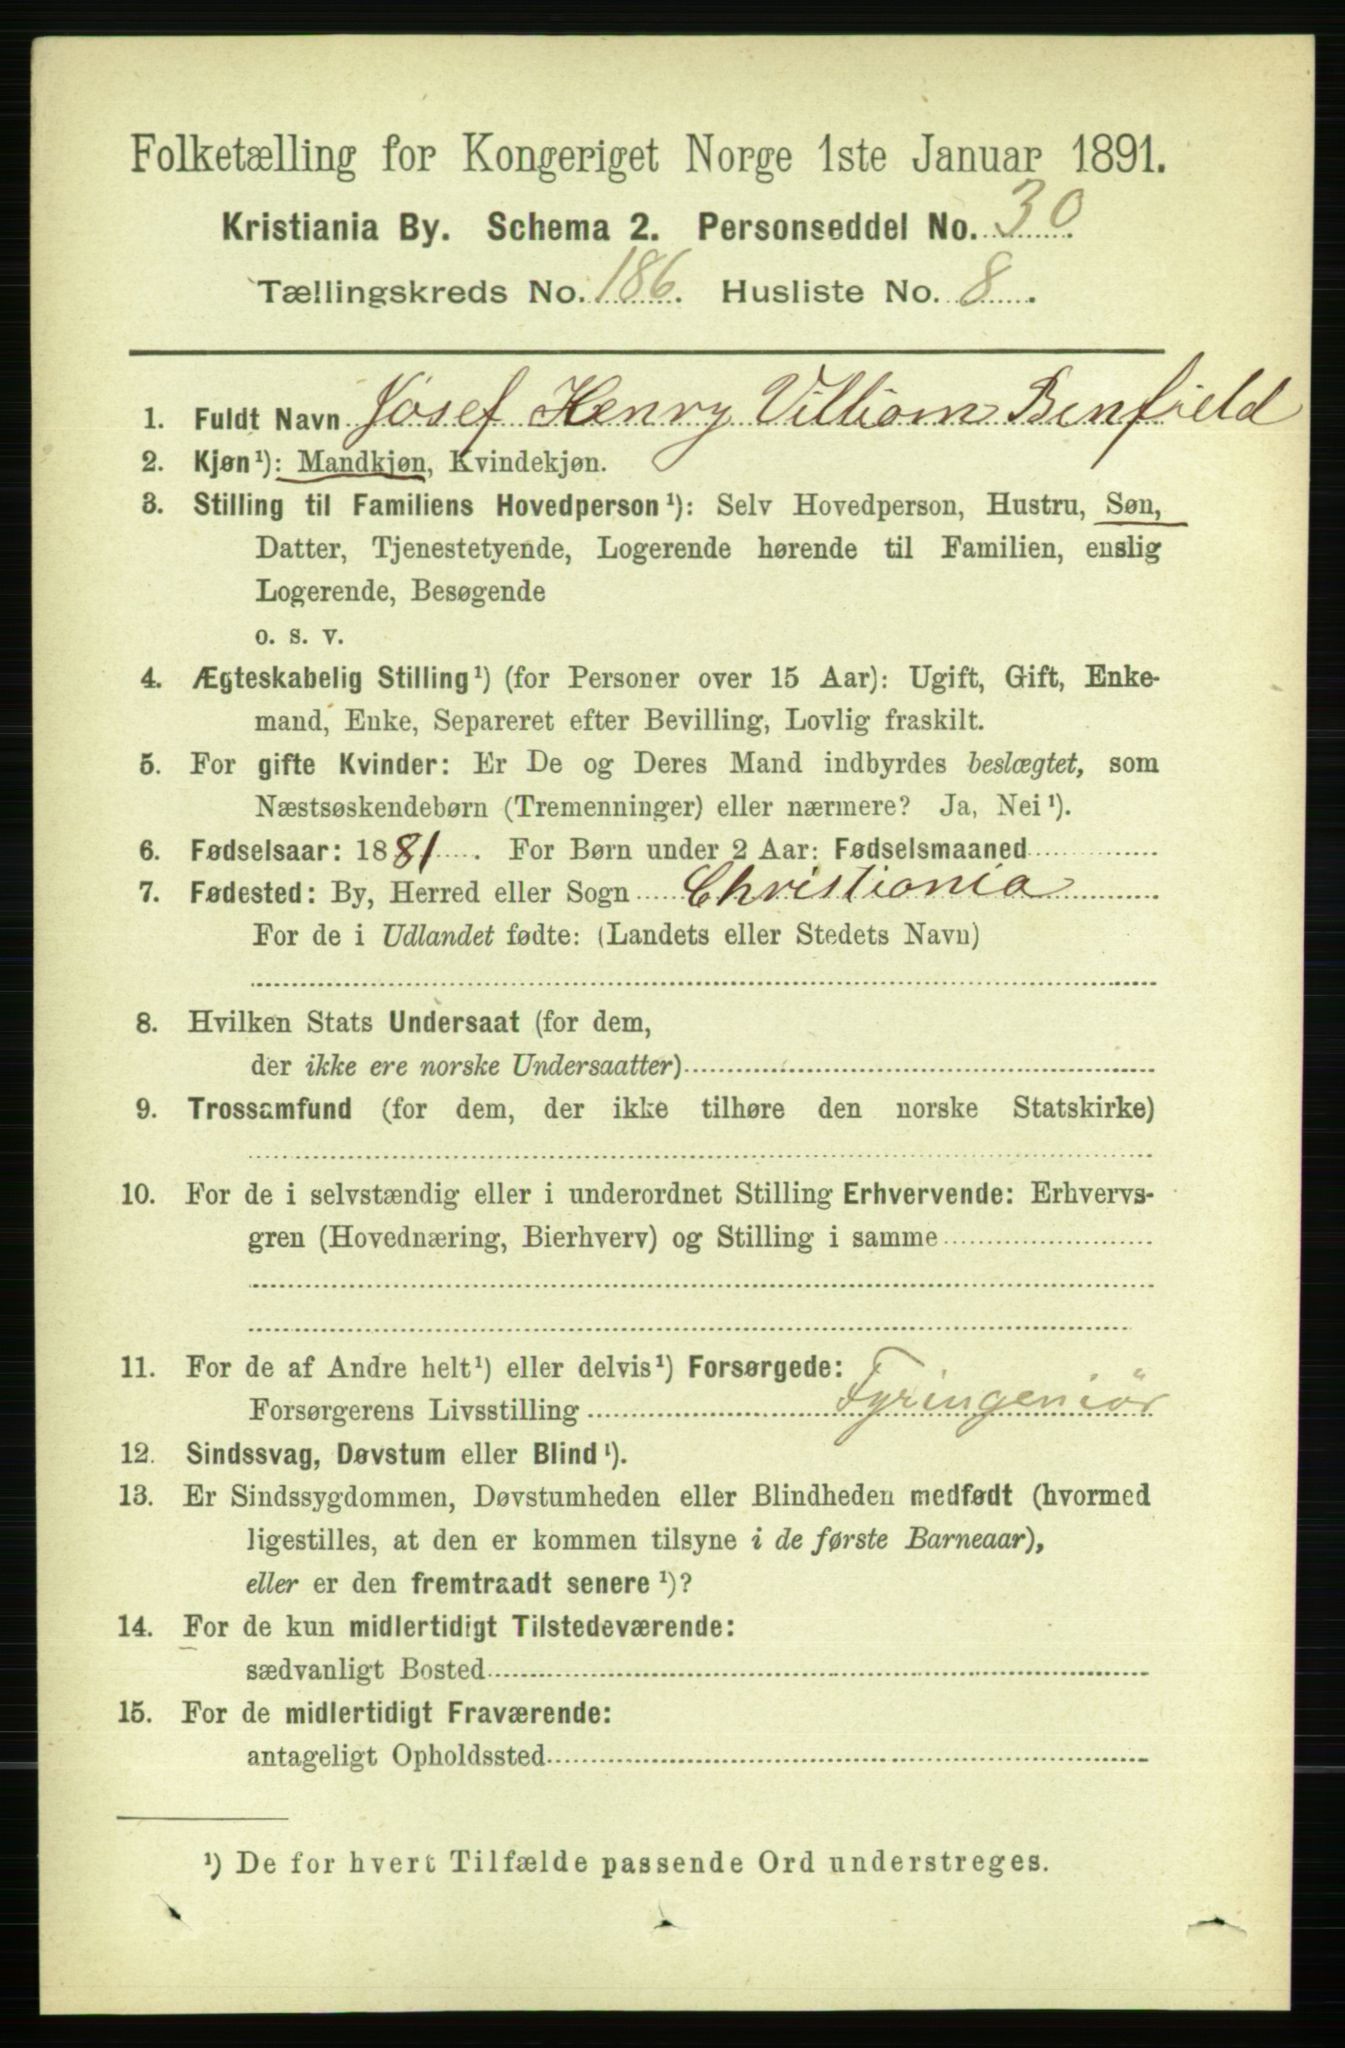 Folketælling for Kongeriget Norge 1ste Januar 1891.
Kristiania By. Schema 2. Personseddel No. 30
Tællingskreds No. 186. Husliste No. 8.
1. Fuldt Navn Josef Henry Villiam Benfield
2. Kjøn¹): Mandkjøn, Kvindekjøn.
3. Stilling til Familiens Hovedperson¹): Selv Hovedperson, Hustru, Søn,
Datter, Tjenestetyende, Logerende hørende til Familien, enslig
Logerende, Besøgende
o. s. v.
4. Ægteskabelig Stilling¹) (for Personer over 15 Aar): Ugift, Gift, Enke-
mand, Enke, Separeret efter Bevilling, Lovlig fraskilt.
5. For gifte Kvinder: Er De og Deres Mand indbyrdes beslægtet, som
Næstsøskendebørn (Tremenninger) eller nærmere? Ja, Nei¹).
6. Fødselsaar: 1881. For Børn under 2 Aar: Fødselsmaaned
7. Fødested: By, Herred eller Sogn Christiania
For de i Udlandet fødte: (Landets eller Stedets Navn)
8. Hvilken Stats Undersaat (for dem,
der ikke ere norske Undersaatter)
9. Trossamfund (for dem, der ikke tilhøre den norske Statskirke)
10. For de i selvstændig eller i underordnet Stilling Erhvervende: Erhvervs-
gren (Hovednæring, Bierhverv) og Stilling i samme
11. For de af Andre helt¹) eller delvis¹) Forsørgede:
Forsørgerens Livsstilling Fyringeniör
12. Sindssvag, Døvstum eller Blind¹).
13. Er Sindssygdommen, Døvstumheden eller Blindheden medfødt (hvormed
ligestilles, at den er kommen tilsyne i de første Barneaar),
eller er den fremtraadt senere¹)?
14. For de kun midlertidigt Tilstedeværende:
sædvanligt Bosted
15. For de midlertidigt Fraværende:
antageligt Opholdssted
¹) De for hvert Tilfælde passende Ord understreges.